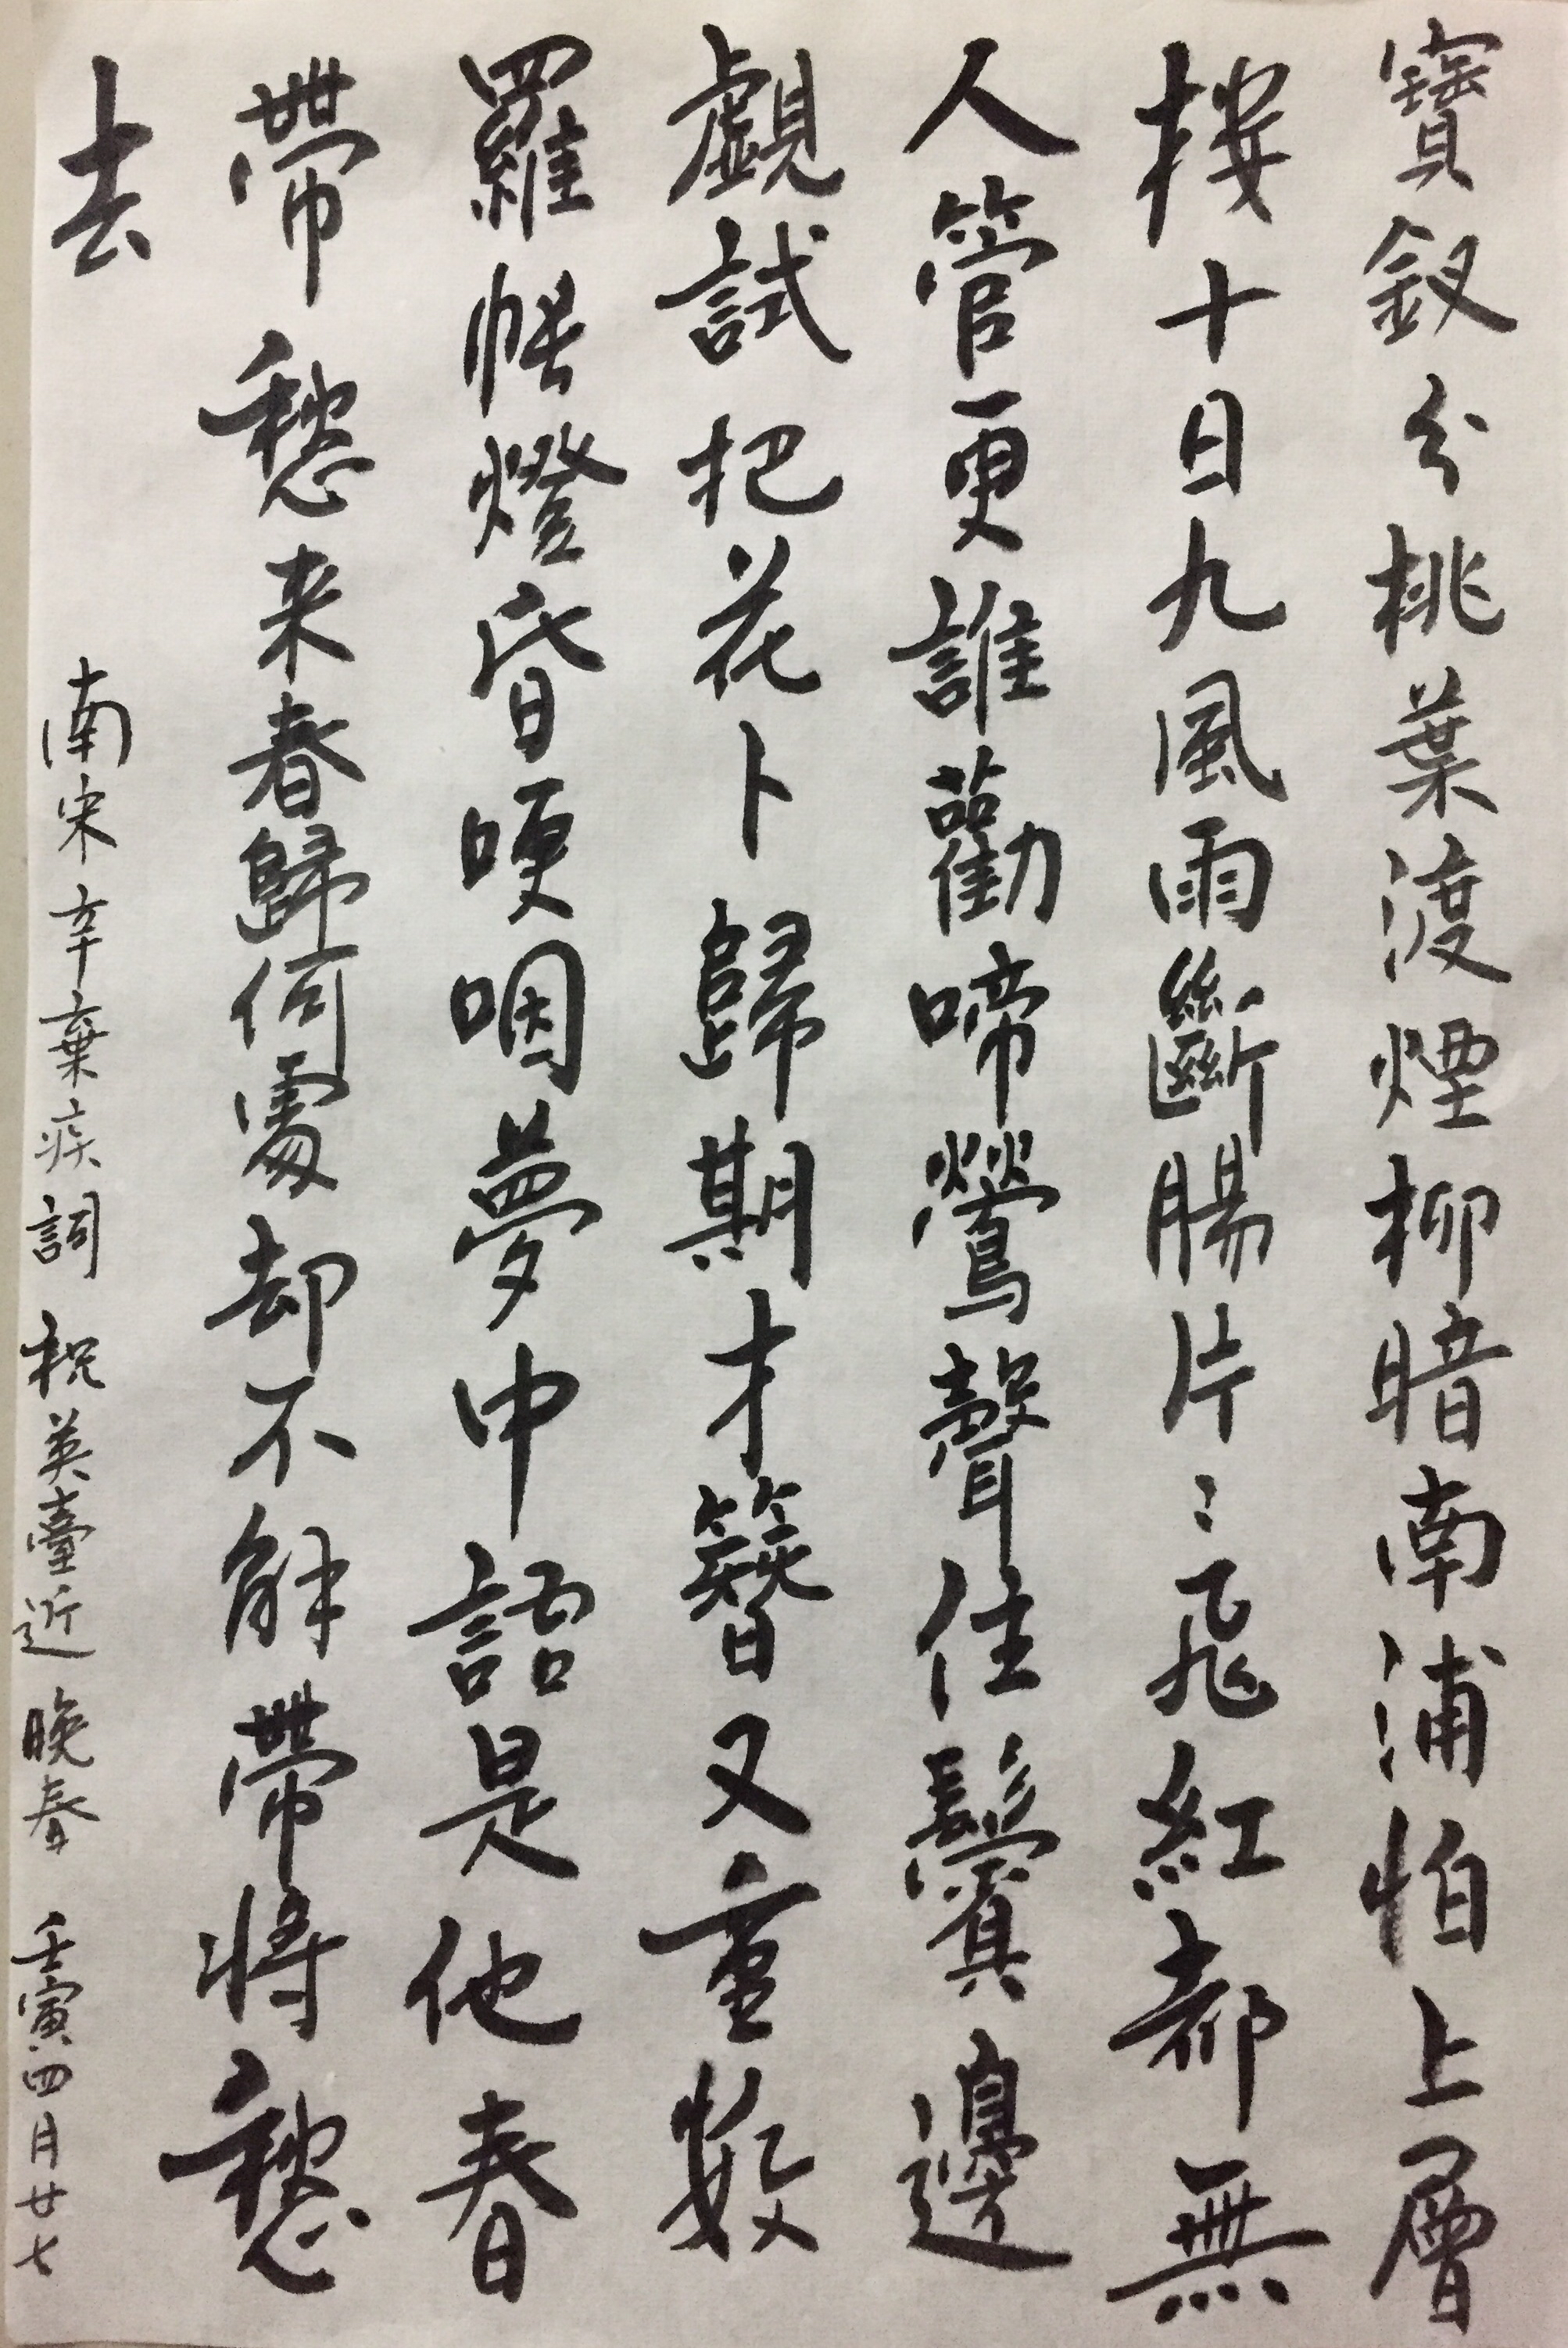 寶釵分桃葉渡煙柳暗南浦怕上層
樓十日九風雨斷腸片〻飛紅都無
人管更誰勸啼鶯聲住鬢邊
覷試把花卜歸期才簪又重數
羅帳燈昏哽咽夢中語是他春
帶愁来春歸何處却不解帶將愁
去
南宋辛棄疾詞 祝英臺近 晚春 壬寅四月廿七